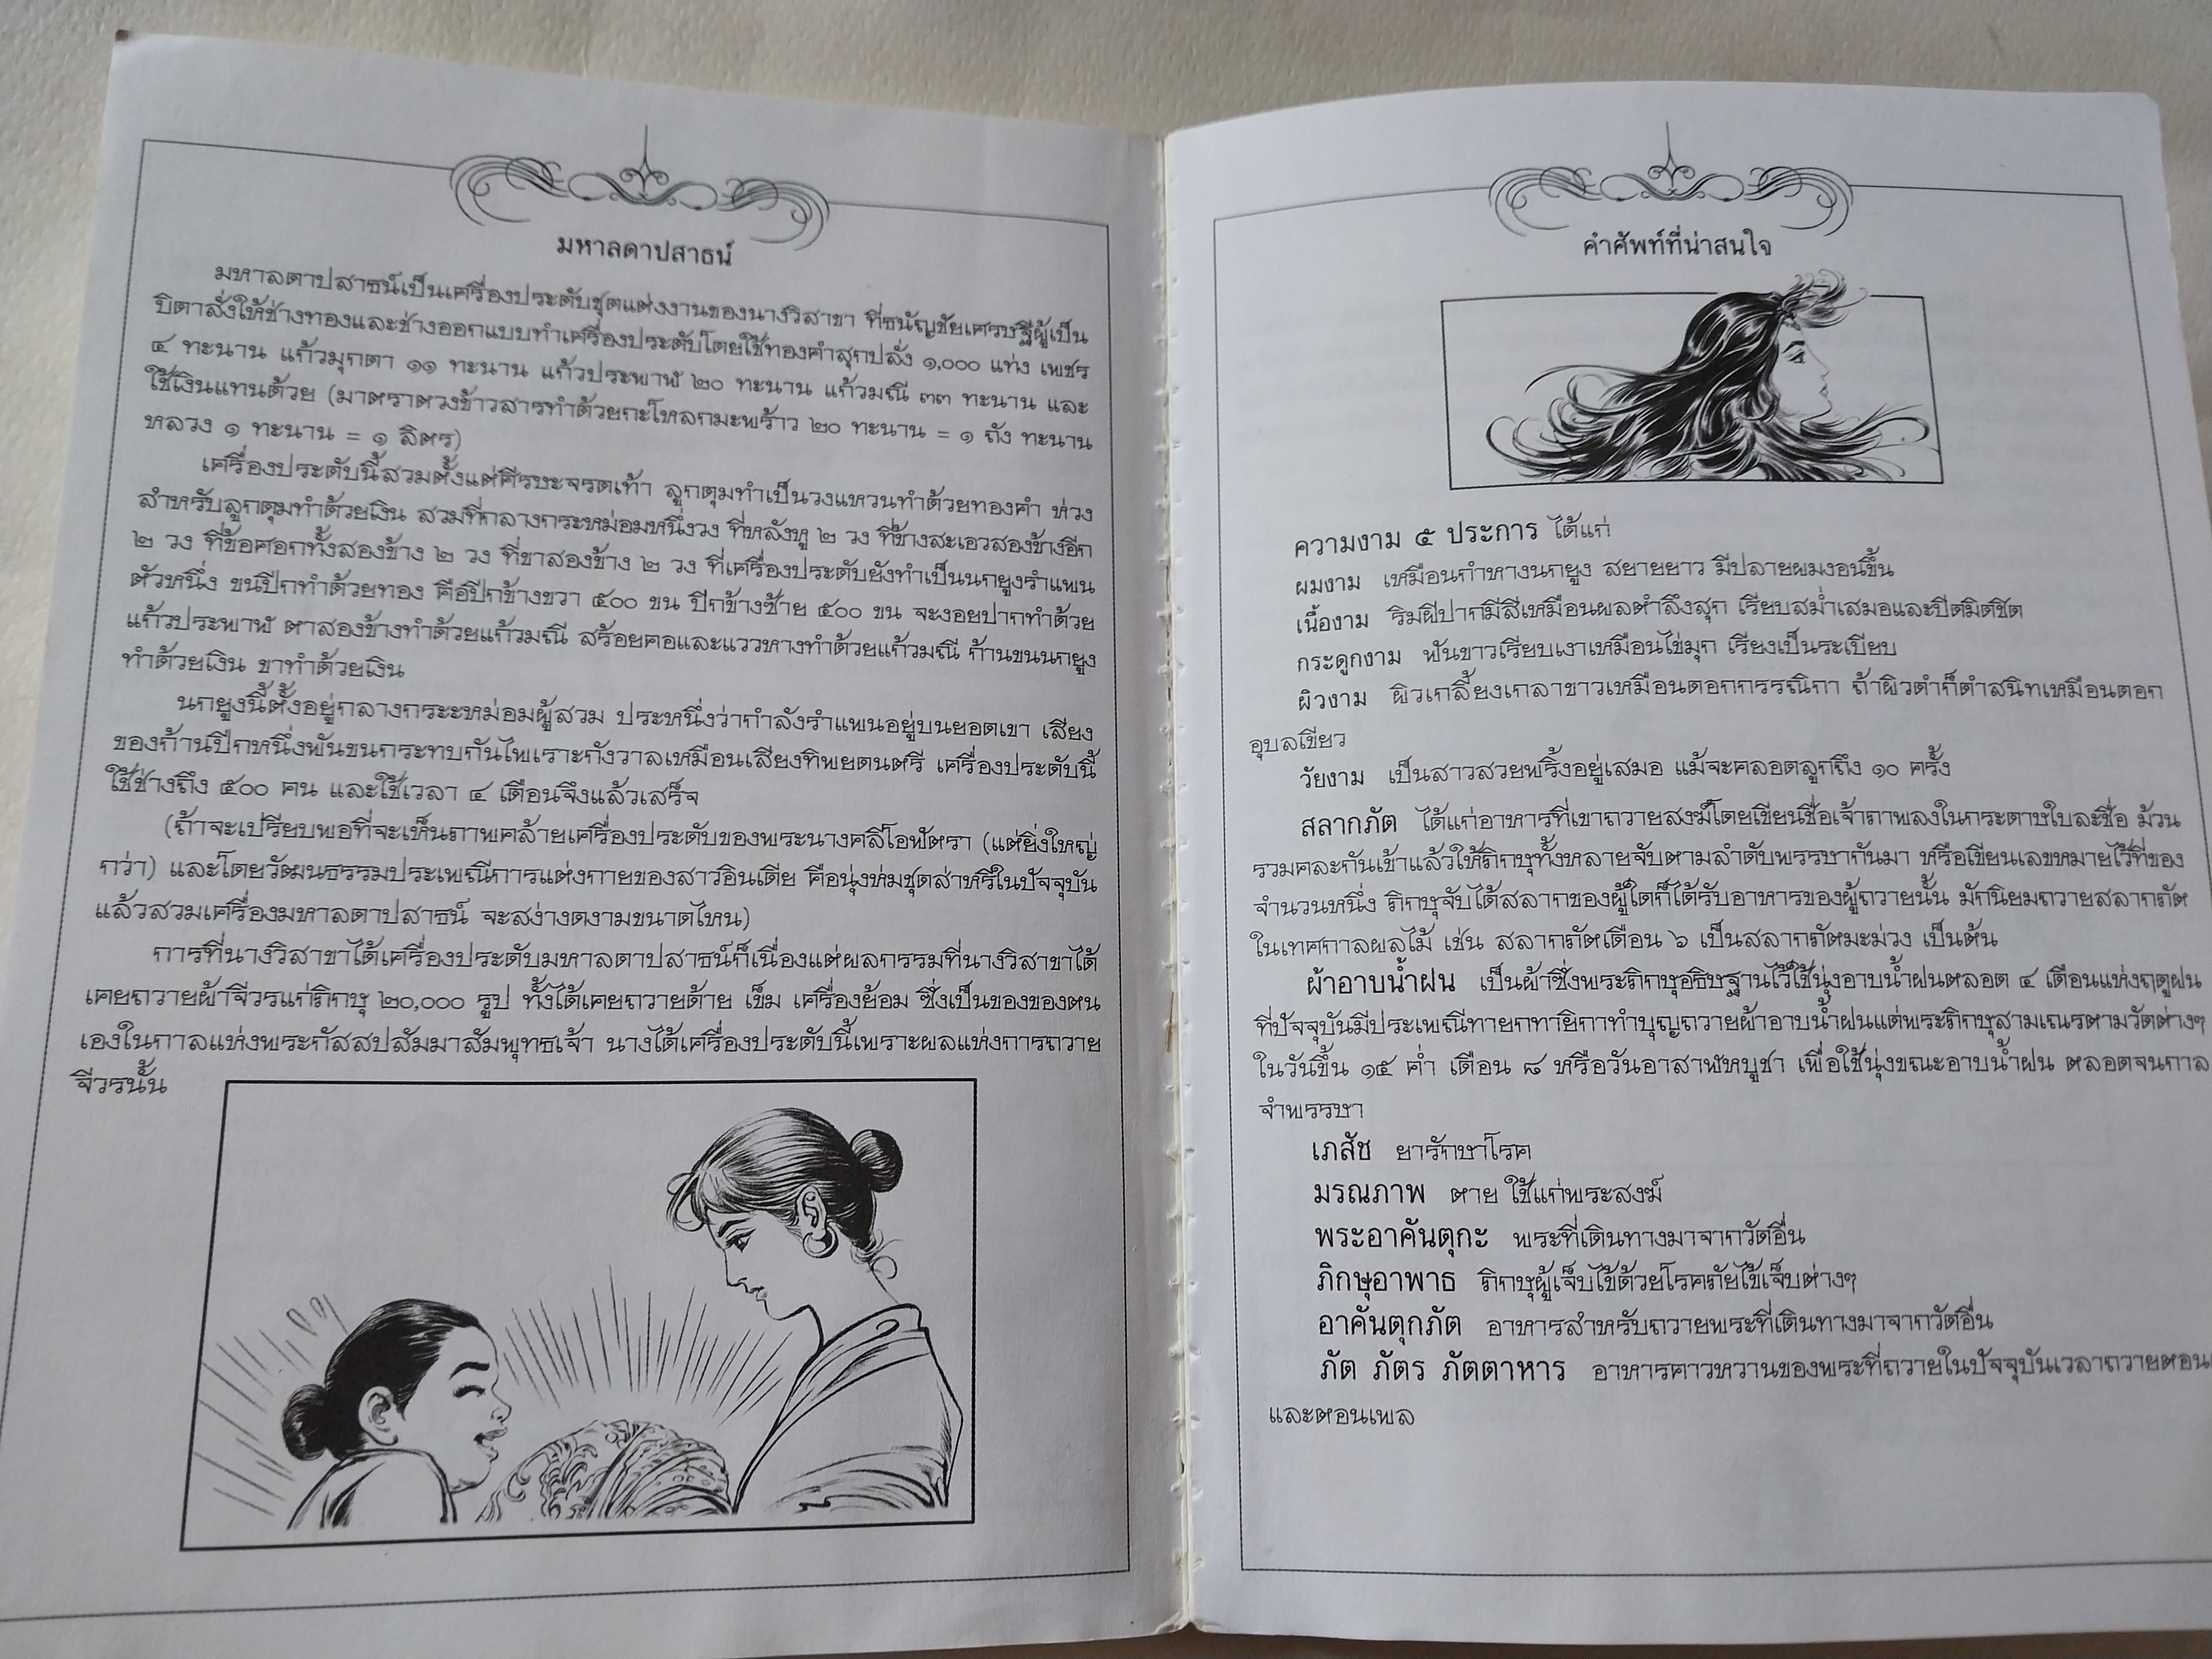 มหาลดาปสาธน์
มหาลดาปสาธน์เป็นเครื่องประดับชุดแต่งงานของนางวิสาขา ที่ธนัญชัยเศรษฐีผู้เป็น
บิดาสั่งให้ช่างทองและช่างออกแบบทำเครื่องประดับโดยใช้ทองคำสุกปลั่ง ๑,๐๐๐ แท่ง เพชร
๔ ทะนาน แก้วมุกดา ๑๑ ทะนาน แก้วประพาฬ ๒๐ ทะนาน แก้วมณี ๓๓ ทะนาน และ
ใช้เงินแทนด้วย (มาตราตวงข้าวสารทำด้วยกะโหลกมะพร้าว ๒๐ ทะนาน = ๑ ถัง ทะนาน
หลวง ๑ ทะนาน = ๑ ลิตร)
เครื่องประดับนี้สวมตั้งแต่ศีรษะจรดเท้า ลูกดุมทำเป็นวงแหวนทำด้วยทองคำ ห่วง
สำหรับลูกดุมทำด้วยเงิน สวมที่กลางกระหม่อมหนึ่งวง ที่หลังหู ๒ วง ที่ข้างสะเอวสองข้างอีก
๒ วง ที่ข้อศอกทั้งสองข้าง ๒ วง ที่ขาสองข้าง ๒ วง ที่เครื่องประดับยังทำเป็นนกยูงรำแพน
ตัวหนึ่ง ขนปีกทำด้วยทอง คือปีกข้างขวา ๕๐๐ ขน ปีกข้างซ้าย ๕๐๐ ขน จะงอยปากทำด้วย
แก้วประพาฬ ตาสองข้างทำด้วยแก้วมณี สร้อยคอและแววหางทำด้วยแก้วมณี ก้านขนนกยูง
ทำด้วยเงิน ขาทำด้วยเงิน
นกยูงนี้ตั้งอยู่กลางกระะหม่อมผู้สวม ประหนึ่งว่ากำลังรำแพนอยู่บนยอดเขา เสียง
ของก้านปีกหนึ่งพันขนกระทบกันไพเราะกังวาลเหมือนเสียงทิพยดนตรี เครื่องประดับนี้
ใช้ช่างถึง ๕๐๐ คน และใช้เวลา ๔ เดือนจึงแล้วเสร็จ
(ถ้าจะเปรียบพอที่จะเห็นภาพคล้ายเครื่องประดับของพระนางคลีโอพัตรา (แต่ยิ่งใหญ่
กว่า) และโดยวัฒนธรรมประเพณีการแต่งกายของสาวอินเดีย คือนุ่งห่มชุดส่าหรีในปัจจุบัน
แล้วสวมเครื่องมหาลดาปสาธน์ จะสง่างดงามขนาดไหน)
การที่นางวิสาขาได้เครื่องประดับมหาลดาปสาธน์ก็เนื่องแต่ผลกรรมที่นางวิสาขาได้
เคยถวายผ้าจีวรแก่ภิกษุ ๒๐,๐๐๐ รูป ทั้งได้เคยถวายด้าย เข็ม เครื่องย้อม ซึ่งเป็นของของตน
เองในกาลแห่งพระกัสสปสัมมาสัมพุทธเจ้า นางได้เครื่องประดับนี้เพราะผลแห่งการถวาย
จีวรนั้น
คำศัพท์ที่น่าสนใจ
ความงาม ๕ ประการ ได้แก่
ผมงาม เหมือนกำหางนกยูง สยายยาว มีปลายผมงอนขึ้น
เนื้องาม ริมฝีปากมีสีเหมือนผลตำลึงสุก เรียบสม่ำเสมอและปิดมิดชิด
กระดูกงาม ฟันขาวเรียบเงาเหมือนไข่มุก เรียงเป็นระเบียบ
ผิวงาม ผิวเกลี้ยงเกลาขาวเหมือนดอกกรรณิกา ถ้าผิวดำก็ดำสนิทเหมือนดอก
อุบลเขียว
วัยงาม เป็นสาวสวยพริ้งอยู่เสมอ แม้จะคลอดลูกถึง ๑๐ ครั้ง
สลากภัต ได้แก่อาหารที่เขาถวายสงฆ์โดยเขียนชื่อเจ้าภาพลงในกระดาษใบละชื่อ ม้วน
รวมคละกันเข้าแล้วให้ภิกษุทั้งหลายจับตามลำดับพรรษากันมา หรือเขียนเลขหมายไว้ที่ของ
จำนวนหนึ่ง ภิกษุจับได้สลากของผู้ใดก็ได้รับอาหารของผู้ถวายนั้น มักนิยมถวายสลากภัต
ในเทศกาลผลไม้ เช่น สลากภัตเดือน ๖ เป็นสลากภัตมะม่วง เป็นต้น
ผ้าอาบน้ำฝน เป็นผ้าซึ่งพระภิกษุอธิษฐานไว้ใช้นุ่งอาบน้ำฝนตลอด ๔ เดือนแห่งฤดูฝน
ที่ปัจจุบันมีประเพณีทายกทายิกาทำบุญถวายผ้าอาบน้ำฝนแด่พระภิกษุสามเณรตามวัดต่างๆ
ในวันขึ้น ๑๕ ค่ำ เดือน ๘ หรือวันอาสาฬหบูชา เพื่อใช้นุ่งขณะอาบน้ำฝน ตลอดจนกาล
จำพรรษา
เภสัช ยารักษาโรค
มรณภาพ ตาย ใช้แก่พระสงฆ์
พระอาคันตุกะ พระที่เดินทางมาจากวัดอื่น
ภิกษุอาพาธ ภิกษุผู้เจ็บไข้ด้วยโรคภัยไข้เจ็บต่างๆ
อาคันตุกภัต อาหารสำหรับถวายพระที่เดินทางมาจากวัดอื่น
ภัต ภัตร ภัตตาหาร อาหารคาวหวานของพระที่ถวายในปัจจุบันเวลาถวายตอน
และตอนเพล